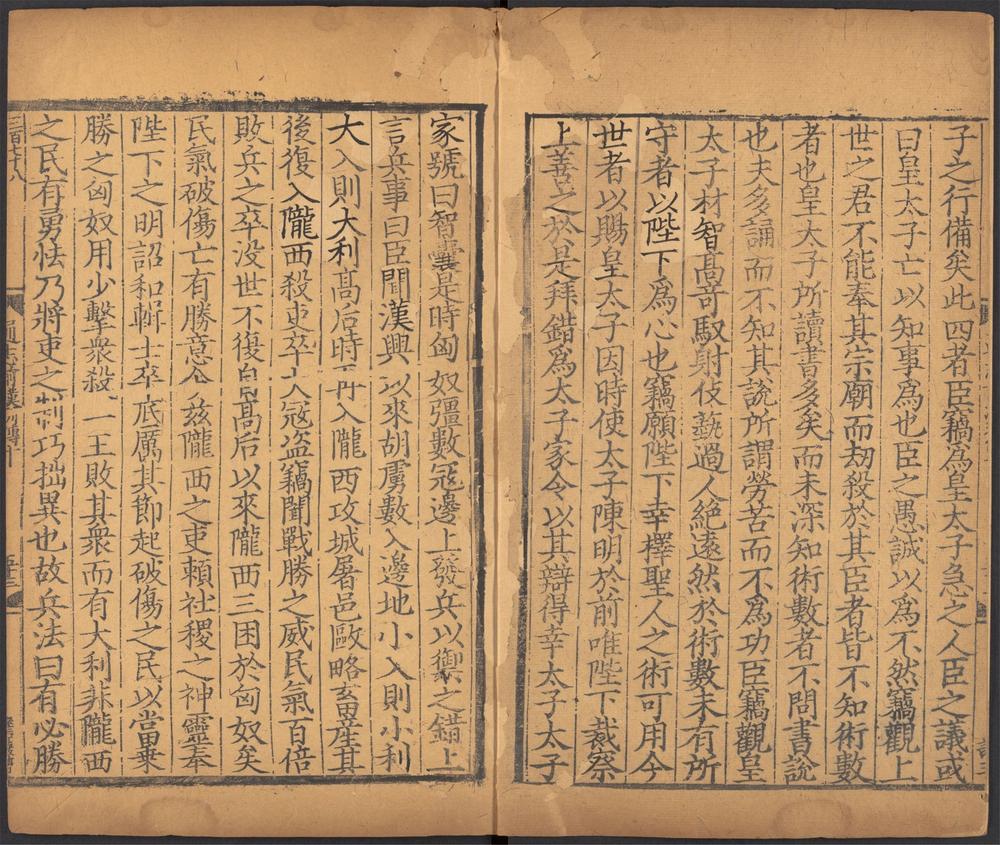 子之行備矣此四者臣竊爲皇太子急之人臣之議或
曰皇太子亡以知事爲也臣之愚誠以爲不然竊觀上
世之君不能奉其宗廟而劫殺於其臣者皆不知術數
者也皇太子所讀書多矣而未深知術數者不問書說
也夫多誦而不知其說所謂勞苦而不爲功臣竊觀皇
太子材智高竒馭射伎藝過人絶遠然於術數未有所
守者以陛下爲心也竊願陛下幸擇聖人之術可用今
世者以賜皇太子因時使太子陳明於前唯陛下裁察
上善之於是拜錯爲太子家令以其辯得幸太子太子
家號曰智囊是時匈奴彊數冦邊上發兵以禦之錯上
言兵事曰臣聞漢興以來胡虜數入邊地小入則小利
大入則大利髙后時再入隴西攻城屠邑歐略畜産其
後復入隴西殺吏卒大冦盗竊聞戰勝之威民氣百倍
敗兵之卒没世不復自髙后以來隴西三困於匈奴矣
民氣破傷亡有勝意今兹隴西之吏賴社稷之神靈奉
陛下之明詔和輯士卒底厲其節起破傷之民以當乗
勝之匈奴用少擊衆殺一王敗其衆而有大利非隴西
之民有勇怯乃將吏之制巧拙異也故兵法曰有必勝
三百廿八
通志前漢列傳十